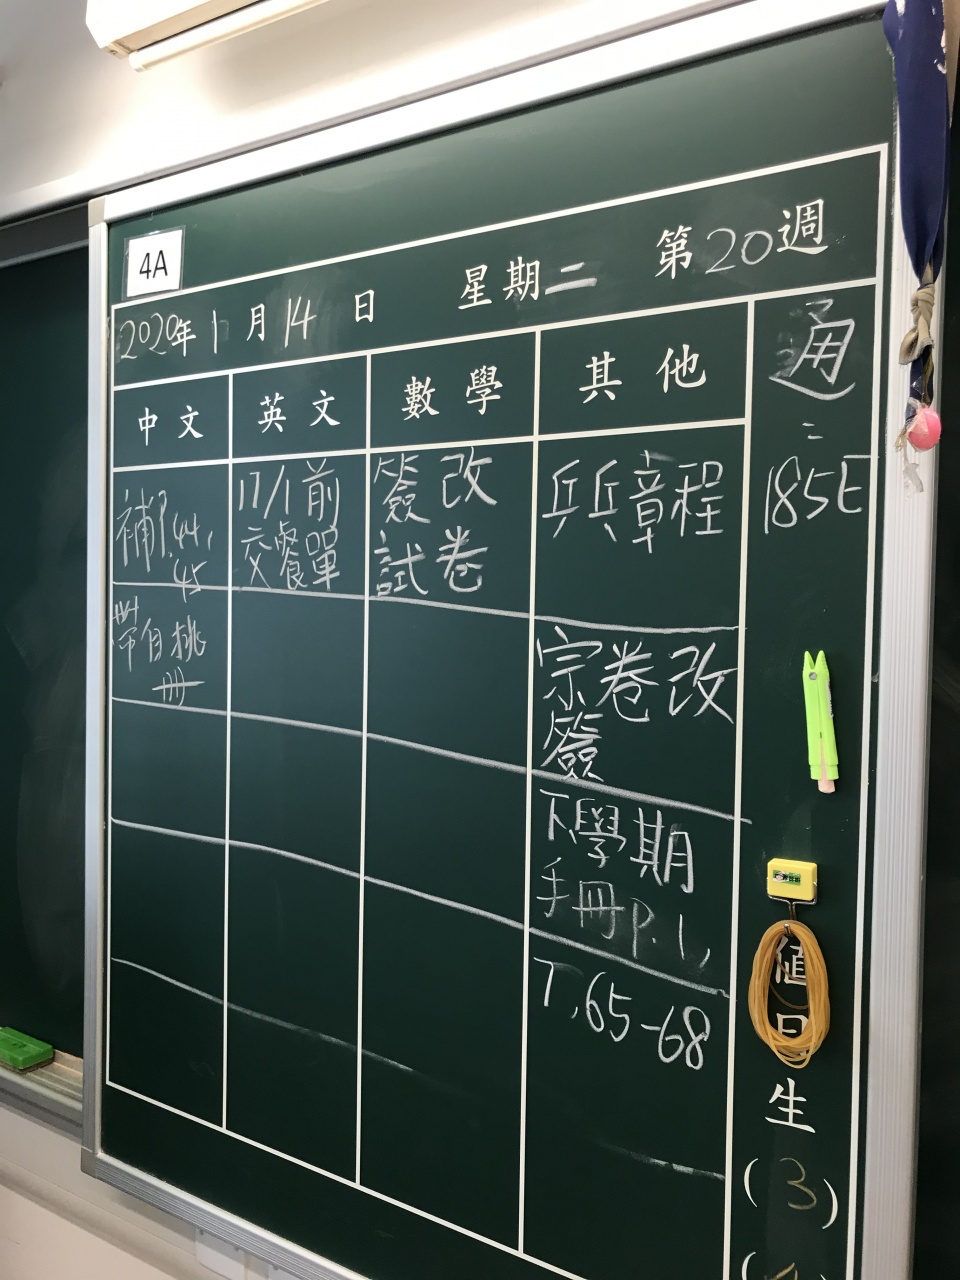 4A
第20週
2020年1月14日 星期二
中文
英文
數學
其他
補44,
45
帶自挑
冊
17/1前
交餐單
簽改
試卷
乒乓章程
宗卷改
簽
下學期
手冊P.1,
T.65-68
通
:
185E
值日生
(3)